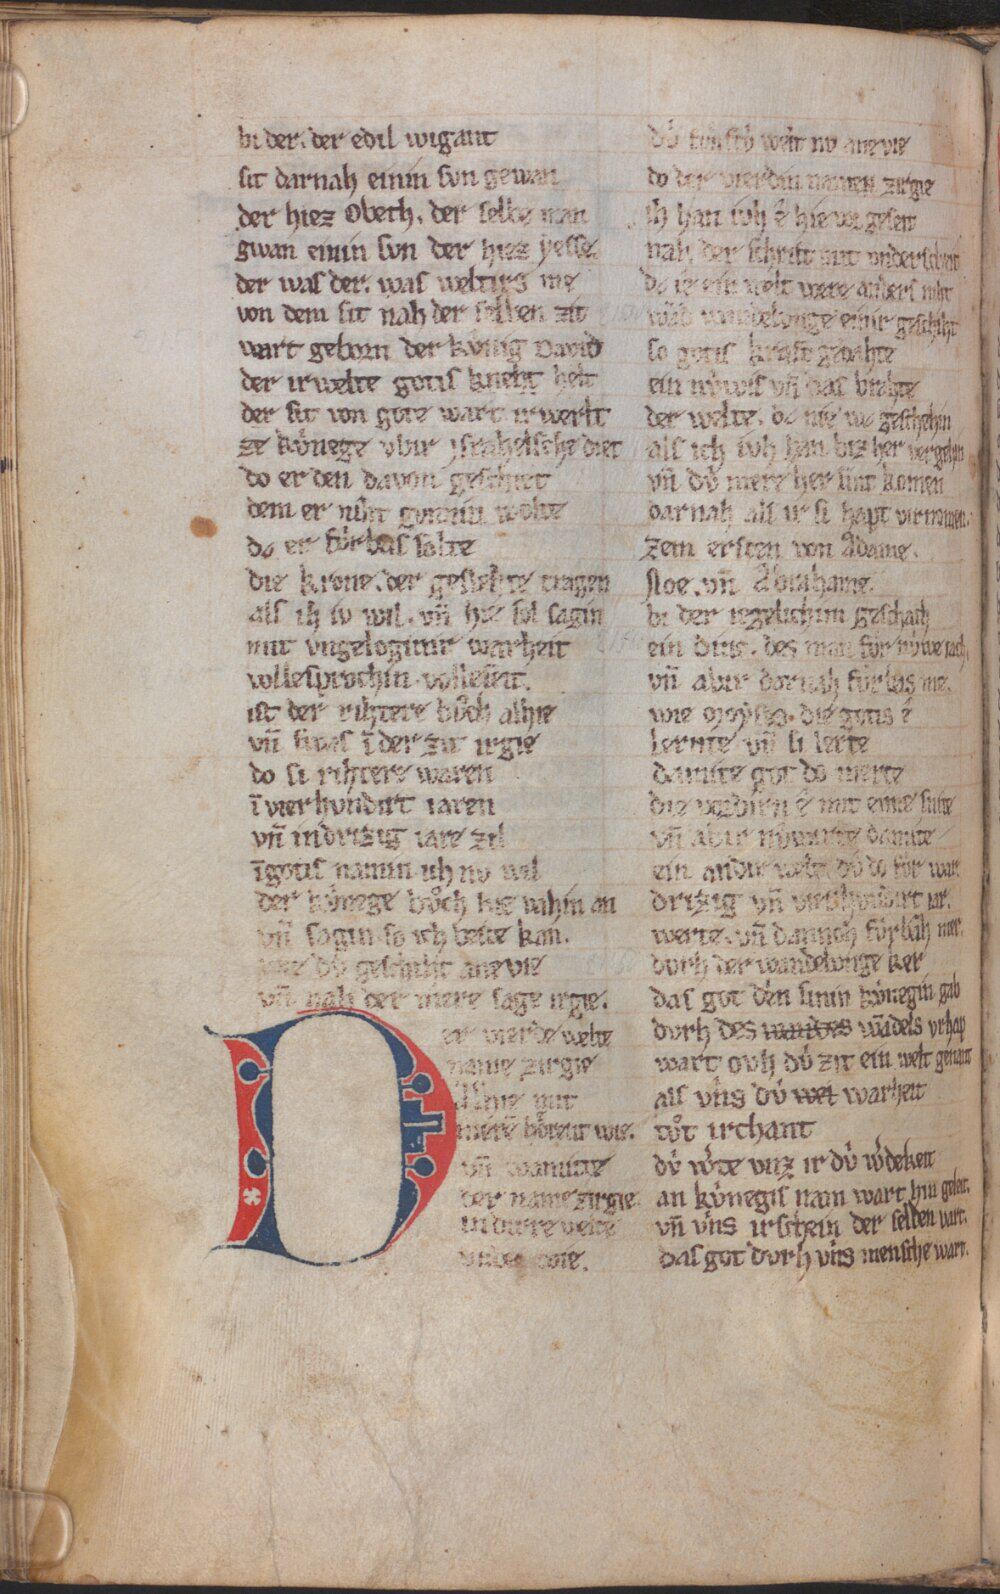 bi der. der edil wigant
sit darnah einin svn gewan
der hiez Obeth. der selbe man
gwan einin svn der hiez yesse.
der was der. was weltirs me
von dem sit nah der selben zit
wart geborn der kv́nig David
der irwelte gotis kneht helt
der sit von gote wart irwerlt
ze kv́nege vbir israhelsche diet
do er den davon geschiet
dem er niht gvnnin wolte
da er fv́rbas solte
die krone. der geslehte tragen
als ih iv wil. vñ hie sol sagin
mit vngeloginir warheit
vollesprochin. volleseit.
ist der rihtere bůch alhie
vñ swas ī der zit irgie
do si rihtere waren
ī vierhvndirt iaren
vñ in drizig iare zil
ī gotis namin ich nv wil
der kv́nege bůch hie vahin an
vñ sagin so ich beste kan.
wie dv́ geschiht ane vie
vñ nah der mere sage irgie.
Der vierde welte
name zirgie
Alhie mit
mere hôrent wie.
vñ wamitte
der name zirgie
in dirre welte
vnde wie.
dv́ fv́nfte welt nv ane vie
do der vierdin namen zirgie
ih han ivh ê hie vor geseit
nah der schrift mit vnderscheit
da ie ein welt were anders niht
wā wandelvnge einir geschiht
so gotis kraft gedahte
ein nv́wis vñ das brahte
der welte. da nie wa geschehin
als ich ivh han biz her vergehin
vñ dv́ mere her sint komen
darnah als ir si hapt virnomen.
Zem ersten von Adame.
Noe. vñ Abrahame.
bi der iegelichim geschach
ein dinc. des man fv́r nv́we iach.
vñ abir darnah fv́rbas me.
wie Moyses. die gotis ê
lernte vñ si lerte
damitte got do merte
die vordirn ê mit eime sitte
vñ abir nv́werte damitte
ein andir welt dv́ do fv́r war
drizig vñ vierhvndirt iar.
werte. vñ dannoh fv́rbaz mer.
dvrh der wandelvnge ker
das got den sinin kv́negin gab
dvrh des wandes wādels vrhap
wart ovh dv́ zit ein welt genant
als vns dv́ wet warheit
tůt irchant
dv́ wˀte vnz ir dv́ wˀdekeit
an kv́negis nam wart hin geleit.
vñ vns irschein der selden vart.
das got dvrh vns mensche wart.